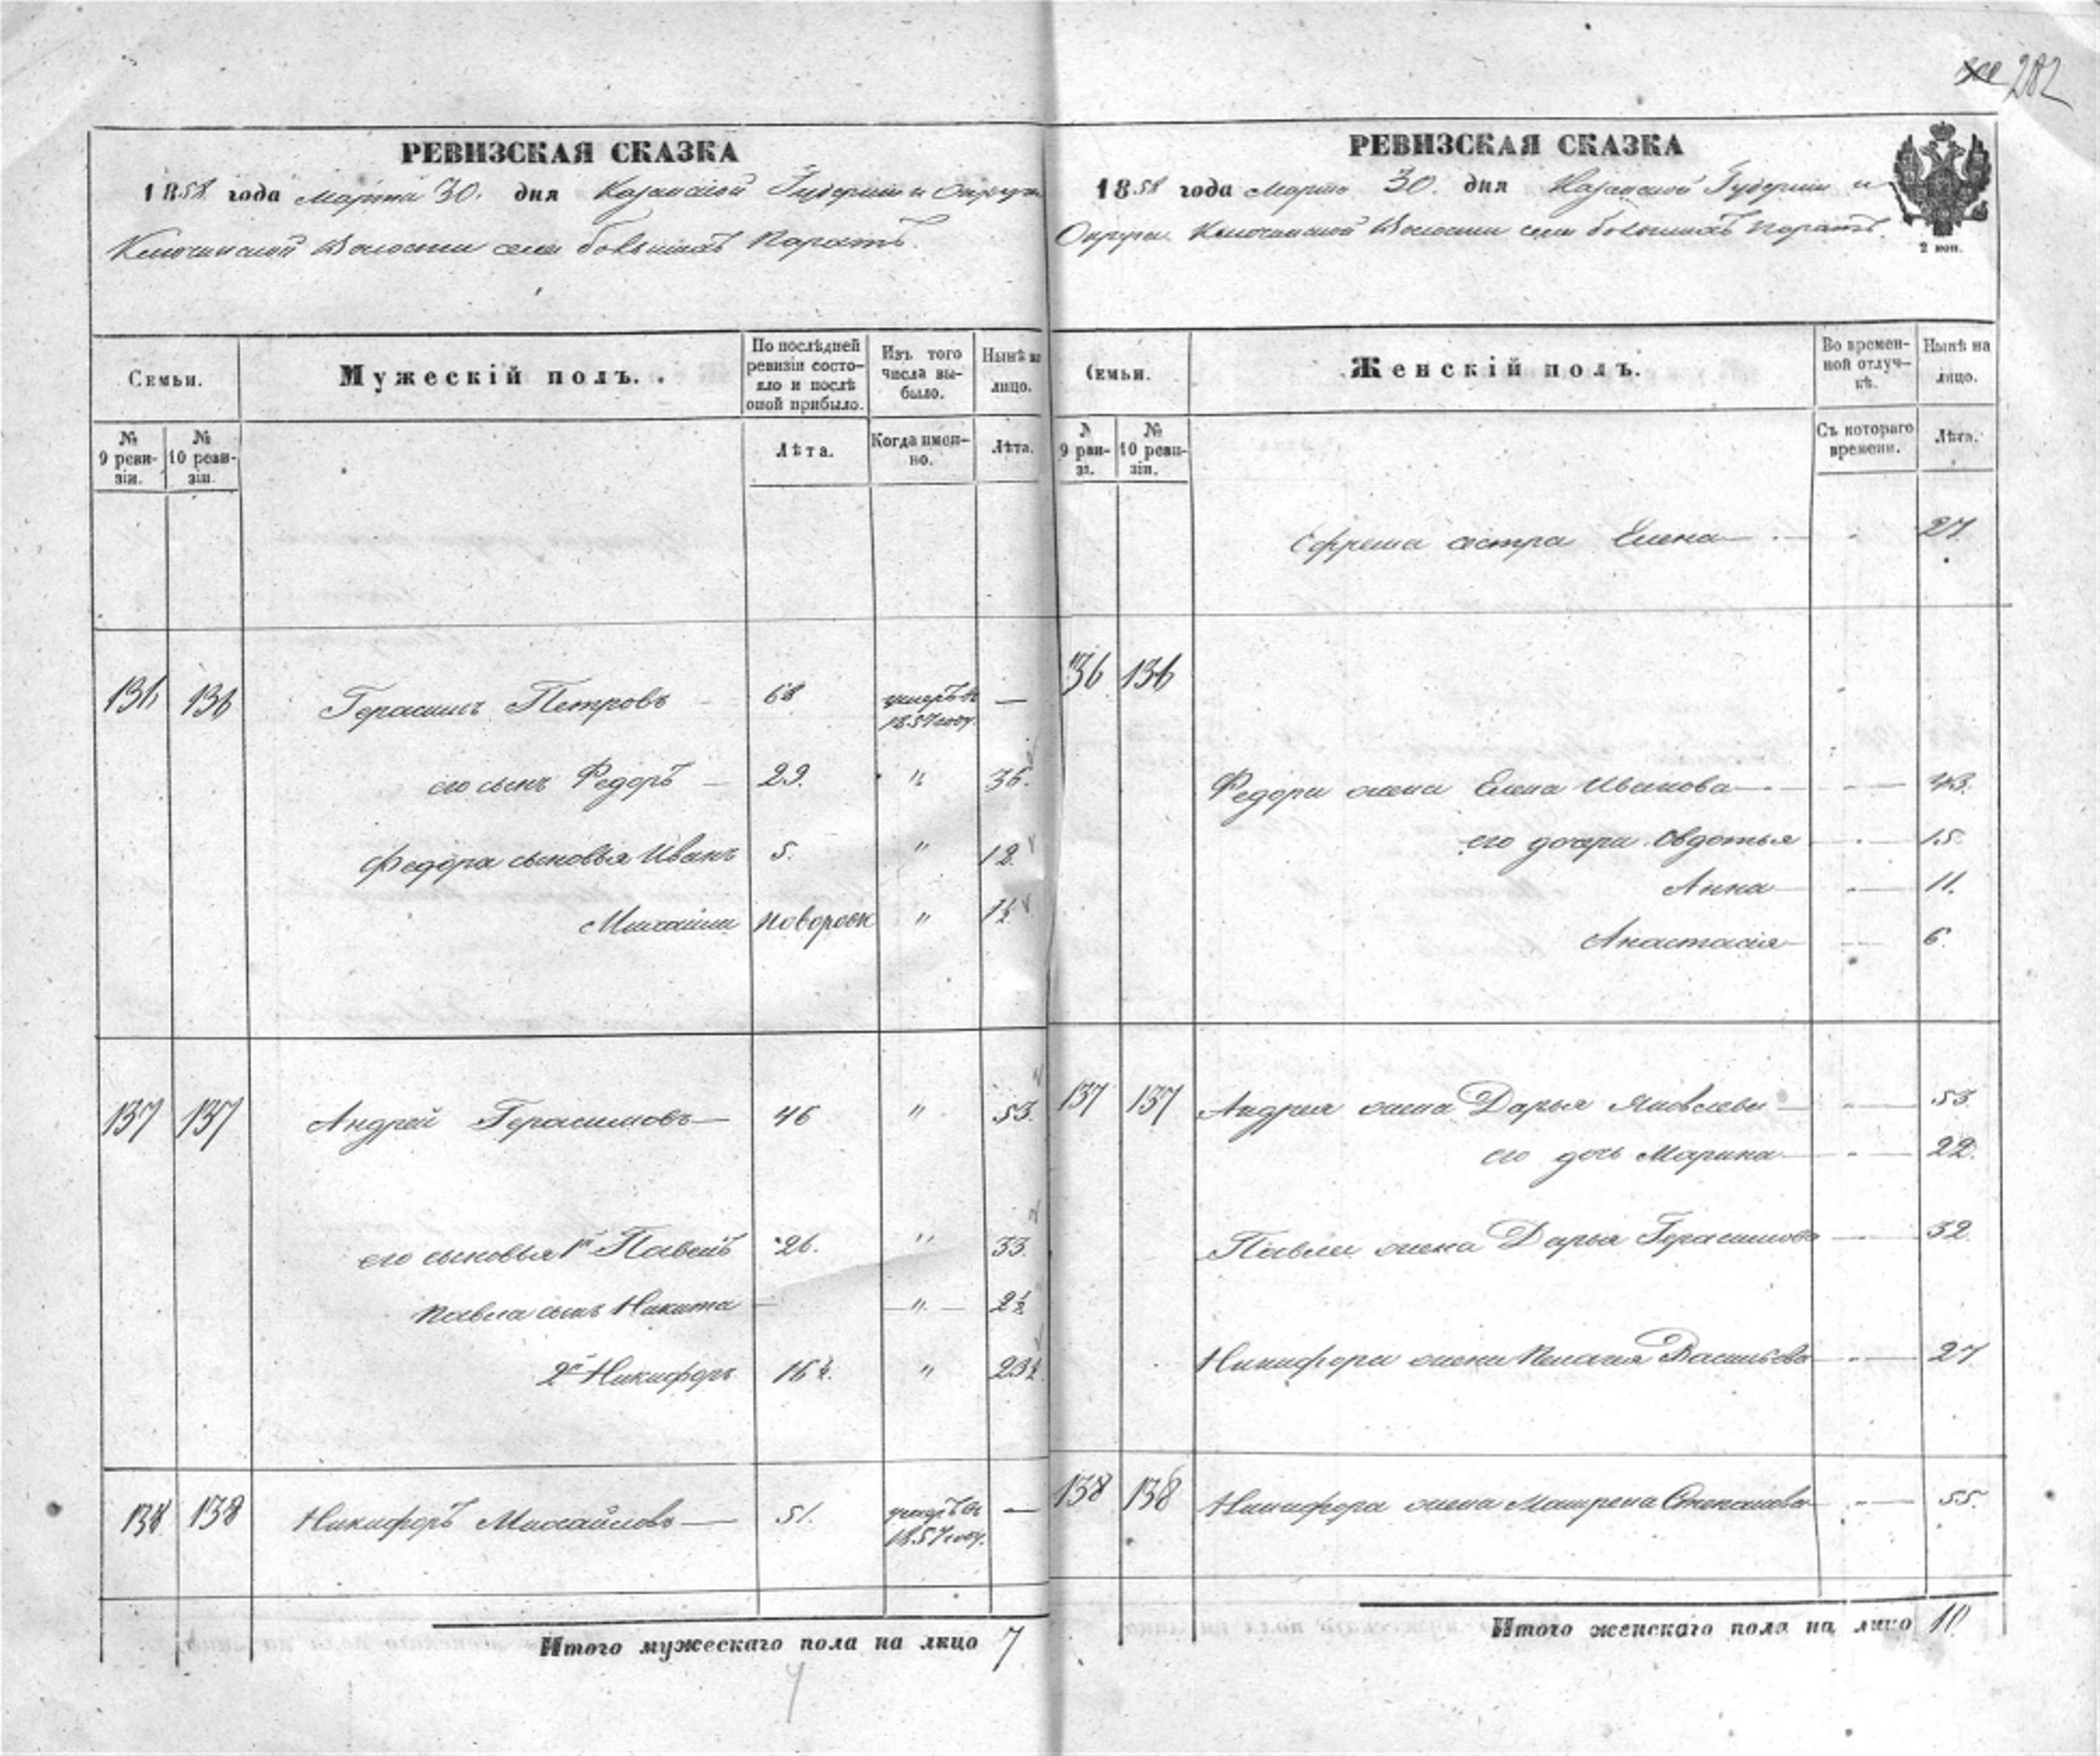 282
РЕВИЗСКАЯ СКАЗКА
1858 года Марта 30. дня Казанской Губернии и Округа
Ключинской Волости села большихъ Паратъ.
Семьи.
Мужескій полъ.
По послѣдней ревизіи состояло и послѣ оной прибыло.
Изъ того числа выбыло.
Нынѣ на лицо.
№ 9 ревизіи.
№ 10 ревизіи.
Лѣта.
Когда именно.
Лѣта.
136 136 Герасимъ Петровъ 68 умеръ въ 1857 году —
его сынъ Федоръ — 29. " 36.
Федора сыновья Иванъ 5. " 12.
Михаилъ новорож " 1½
137 137 Андрей Герасимовъ — 46 " 53.
его сыновья 1й Павелъ 26. " 33.
Павла сынъ Никита — " — 2½
2й Никифоръ 16½. " 23½.
138 138 Никифоръ Михайловъ — 51. умеръ въ 1857 году. —
Итого мужескаго пола на лицо 7
РЕВИЗСКАЯ СКАЗКА
1858 года Марта 30. дня Казанской Губерніи и
Округа Ключинской Волости села большихъ Паратъ.
2 коп.
Семьи.
Женскій полъ.
Во временной отлучкѣ.
Нынѣ на лицо.
№ 9 ревизі.
№ 10 ревизіи.
Съ котораго времени.
Лѣта.
Ефрема сестра Елена — " 27.
136 136
Федора жена Елена Иванова — " — 43.
его дочри Овдотья " — 15.
Анна — " — 11.
Анастасія — 6.
137 137 Андрея жена Дарья Яковлева — " — 53.
его дочь Марина — " — 22.
Павла жена Дарья Герасимова — 32.
Никифора жена Пелагия Васильева — " — 27
138 138 Никифора жена Матрена Степанова — " — 55.
Итого женскаго пола на лицо 10.